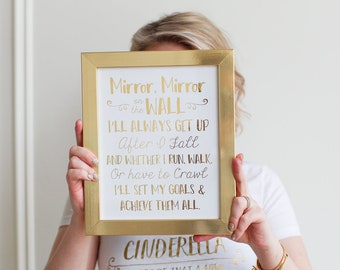 Mirror, Mirror
on the
WALL
I'LL ALWAYS GET UP
After I Fall
AND WHETHER I RUN, WALK,
Or have to Crawl
I'LL SET MY GOALS &
ACHIEVE THEM ALL.
CINDERELLA